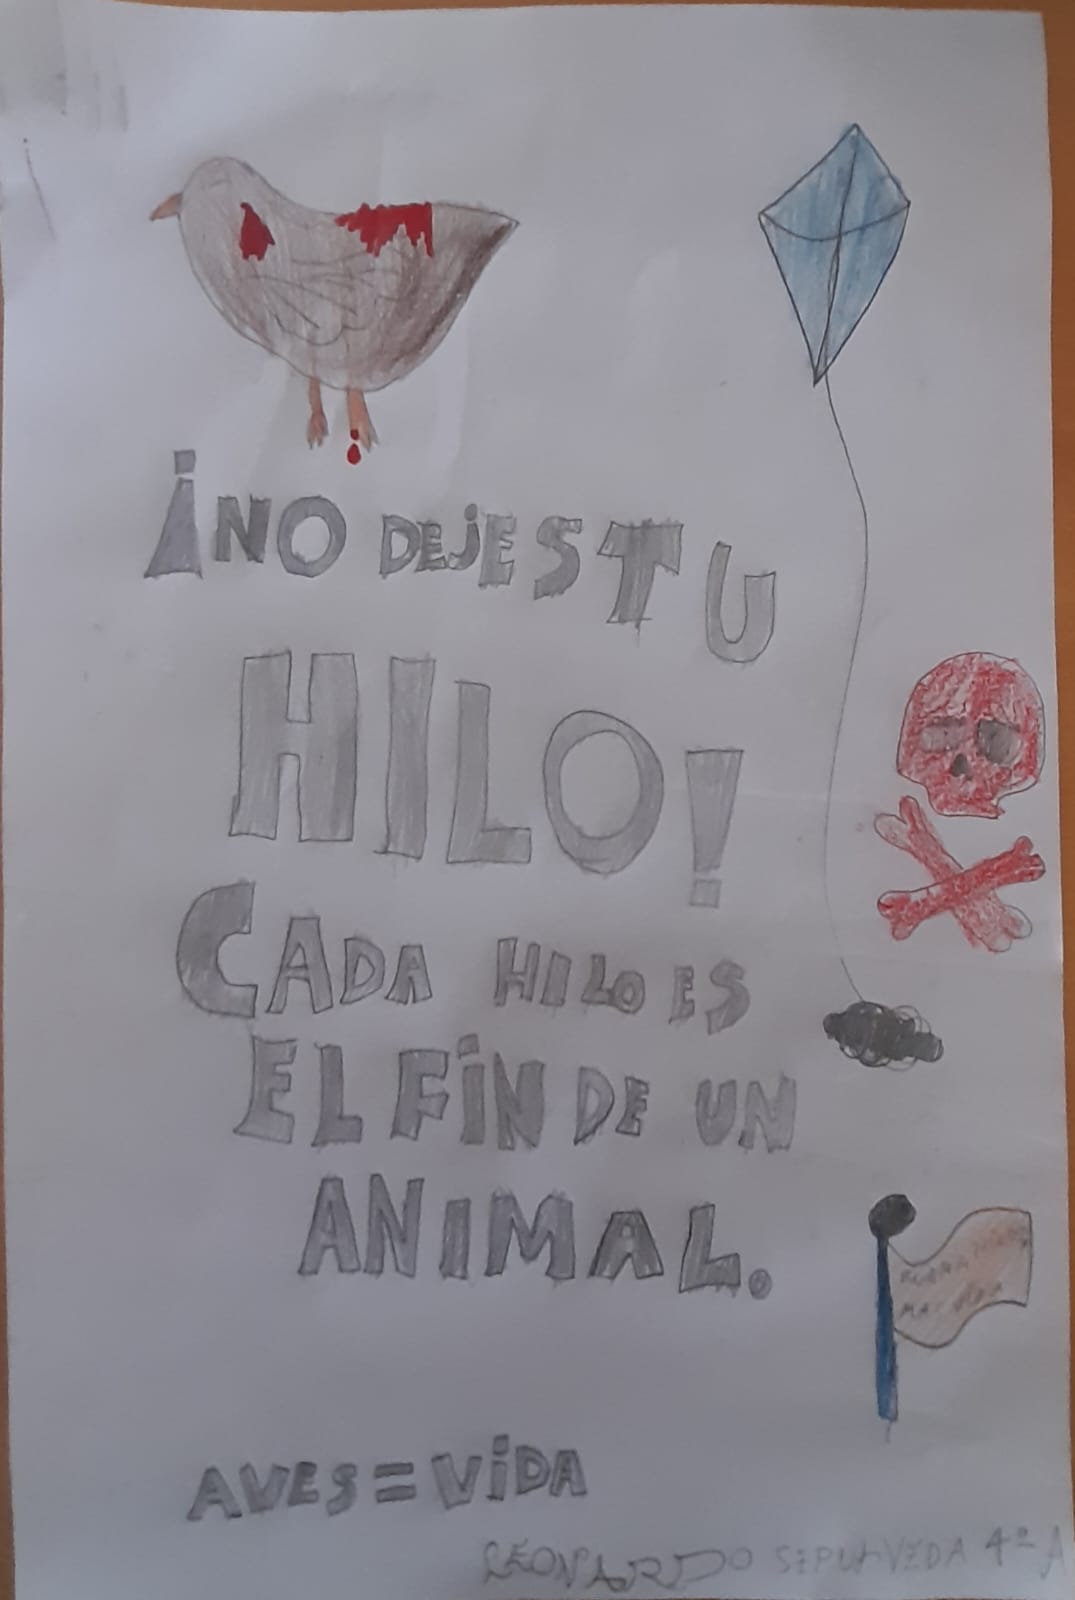 ¡NO DEJES TU
HILO!
CADA HILO ES
EL FIN DE UN
ANIMAL.
AVES = VIDA
LEONARDO SEPULVEDA 4º A